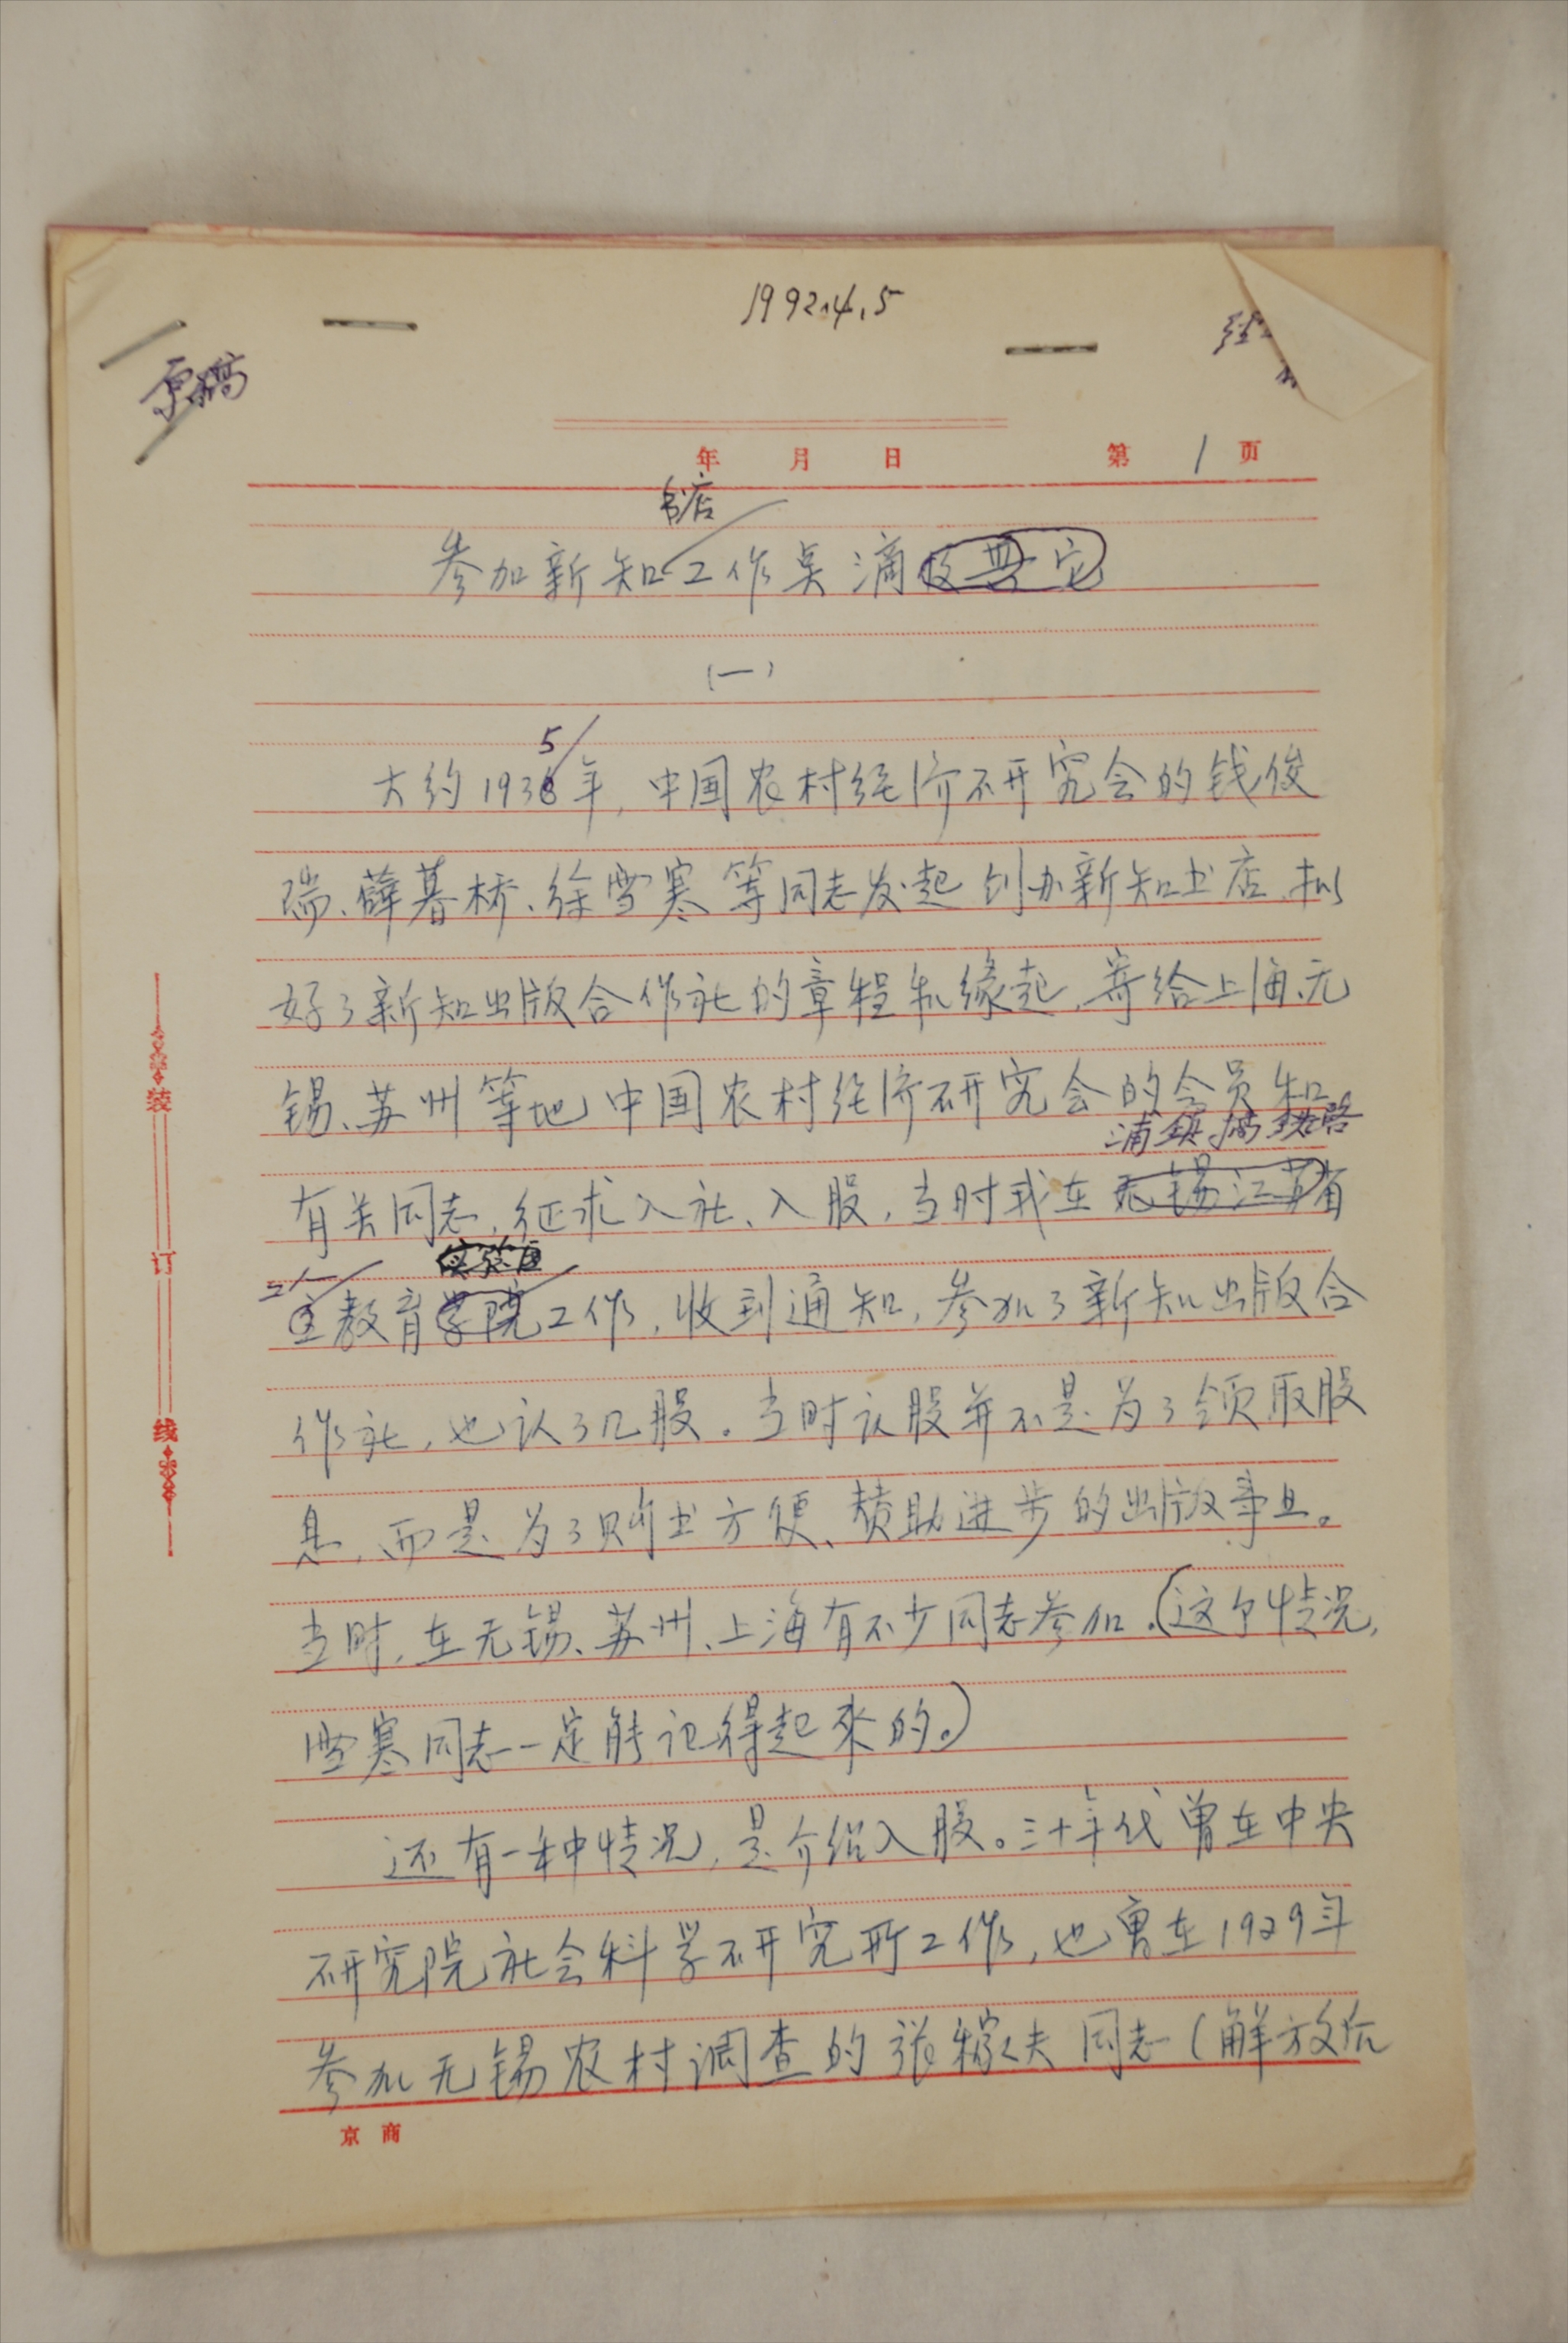 1992.4.5
原稿
年 月 日 第 1 页
书店
参加新知工作点滴及其它
(一)
5
大约1936年,中国农村经济研究会的钱俊
瑞、薛暮桥、徐雪寒等同志发起创办新知书店,拟
好了新知出版合作社的章程和缘起,寄给上海、无
锡、苏州等地中国农村经济研究会的会员和
浦镇搞铁路
有关同志,征求入社、入股,当时我在无锡江苏省
工人 实验区
立教育学院工作,收到通知,参加了新知出版合
作社,也认了几股。当时认股并不是为了领取股
息,而是为了购书方便、赞助进步的出版事业。
当时,在无锡、苏州、上海有不少同志参加。(这个情况,
雪寒同志一定能记得起来的。)
还有一种情况,是介绍入股。三十年代曾在中央
研究院社会科学研究所工作,也曾在1929年
参加无锡农村调查的张稼夫同志(解放后
装
订
线
京 商